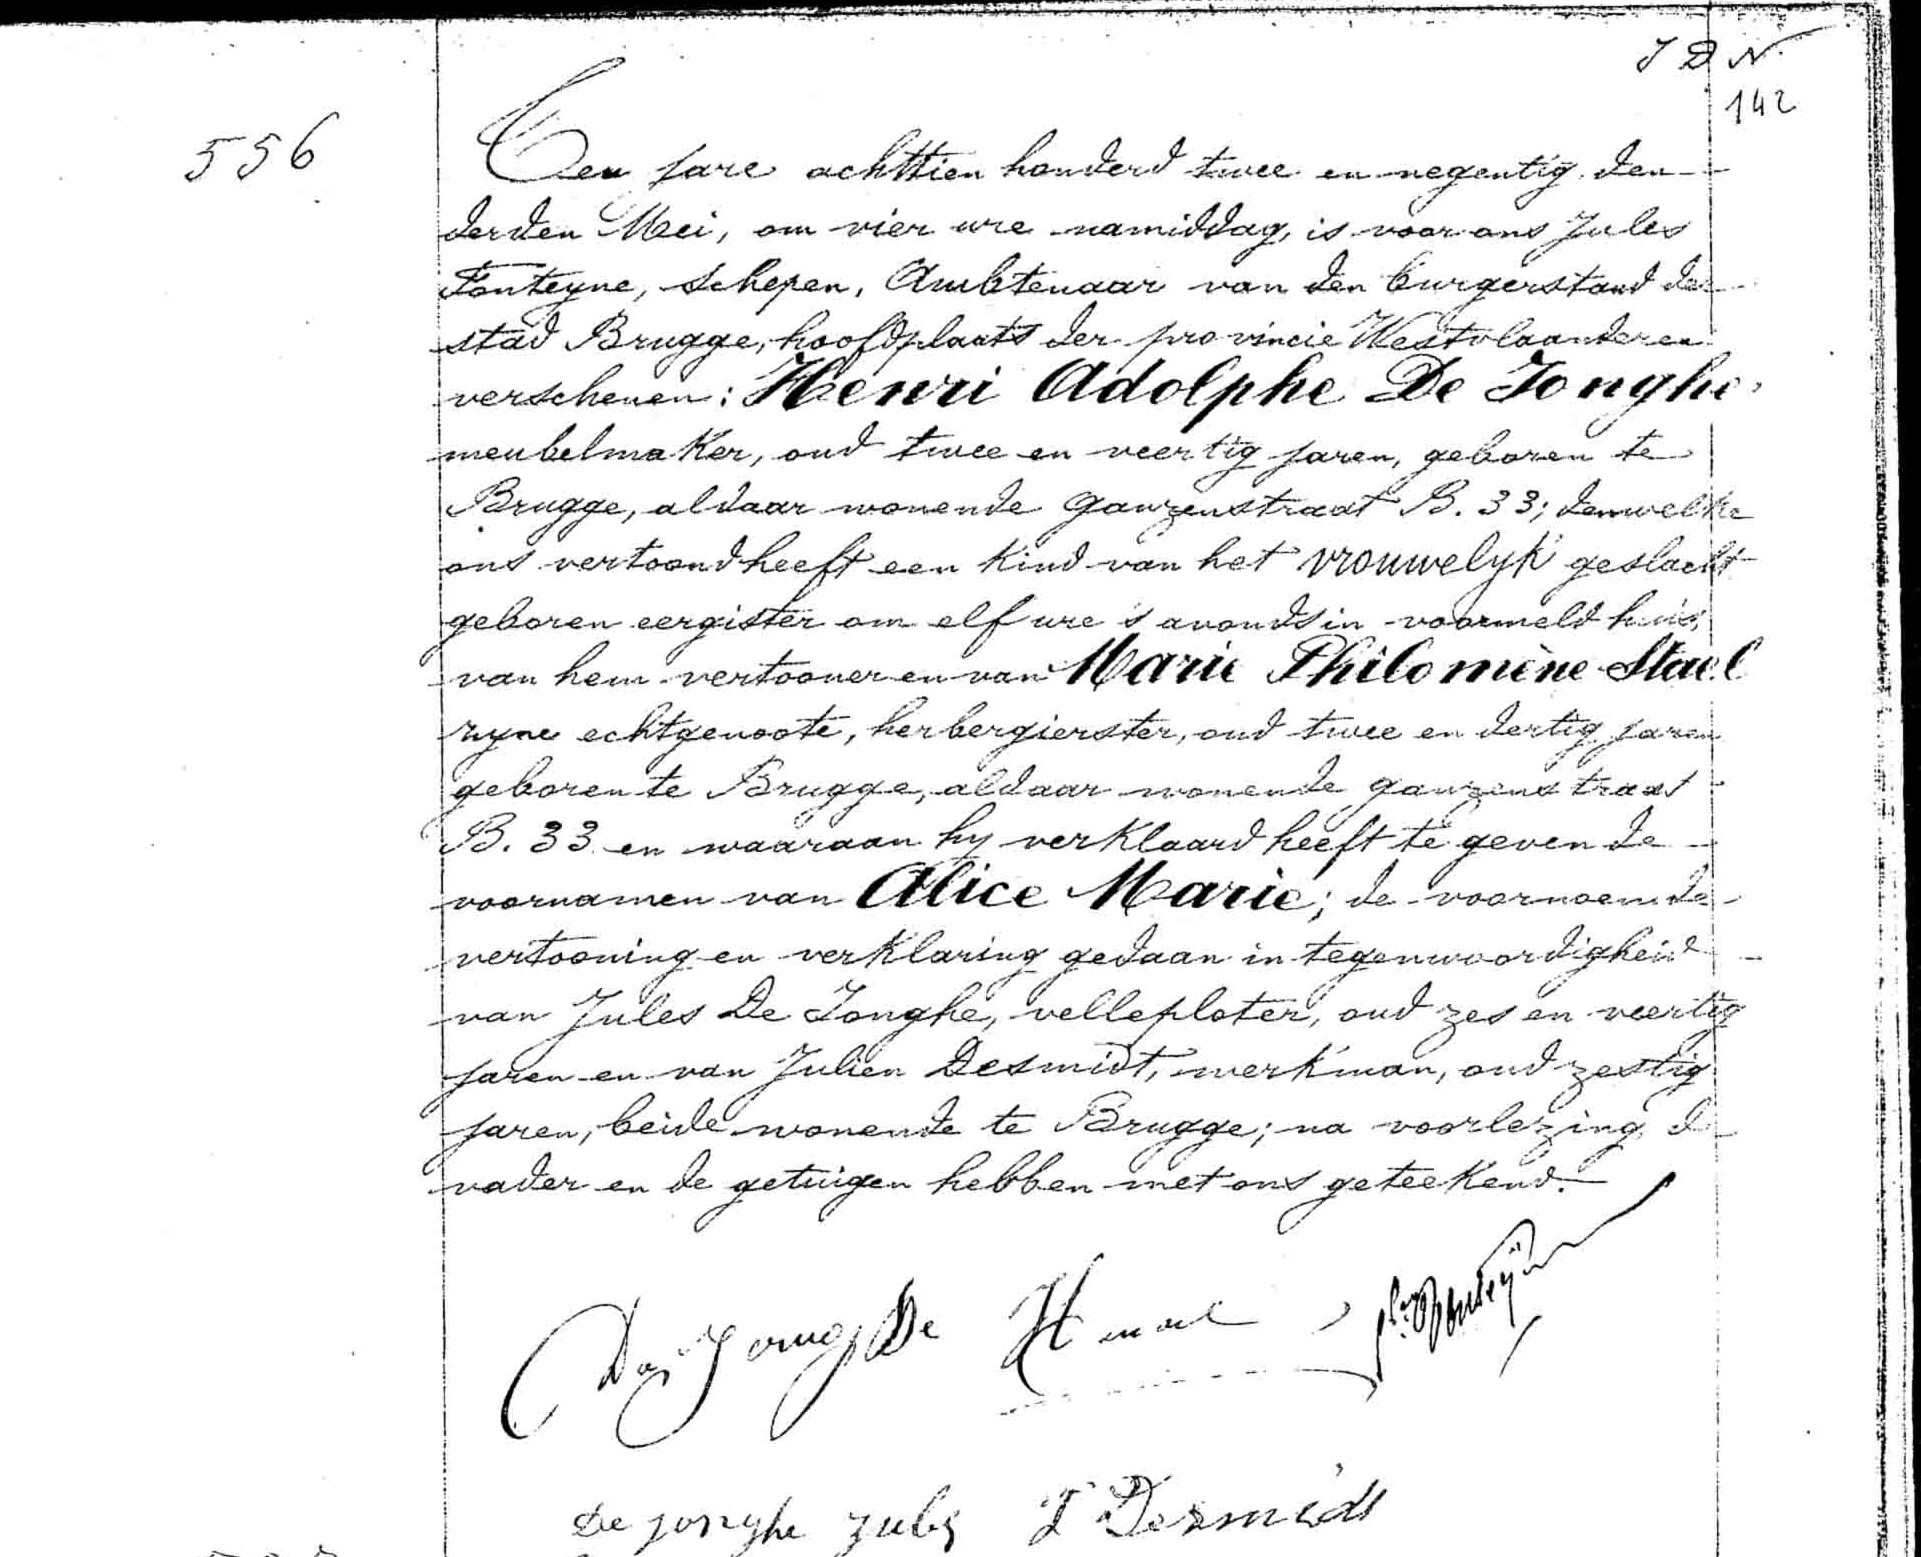 J D N.
142
556
Ten jare achttien honderd twee en negentig den
derden Mei, om vier ure namiddag, is voor ons Jules
Fonteyne, schepen, Ambtenaar van den burgerstand der
stad Brugge, hoofdplaats der provincie Westvlaanderen
verschenen: Henri Adolphe De Jonghe,
meubelmaker, oud twee en veertig jaren, geboren te
Brugge, aldaar wonende ganzenstraat B. 33; denwelke
ons vertoond heeft een kind van het vrouwelyk geslacht
geboren eergister om elf ure 's avonds in voormeld huis,
van hem vertooner en van Marie Philomène Stael
zyne echtgenoote, herbergierster, oud twee en dertig jaren
geboren te Brugge, aldaar wonende ganzenstraat
B. 33 en waaraan hy verklaard heeft te geven de
voornamen van Alice Marie; de voornoemde
vertooning en verklaring gedaan in tegenwoordigheid
van Jules De Jonghe, velleploter, oud zes en veertig
jaren en van Julien Desmidt, werkman, oud zestig
jaren, beide wonende te Brugge; na voorlezing d
vader en de getuigen hebben met ons geteekend.
De jonghe Jules J Desmidt